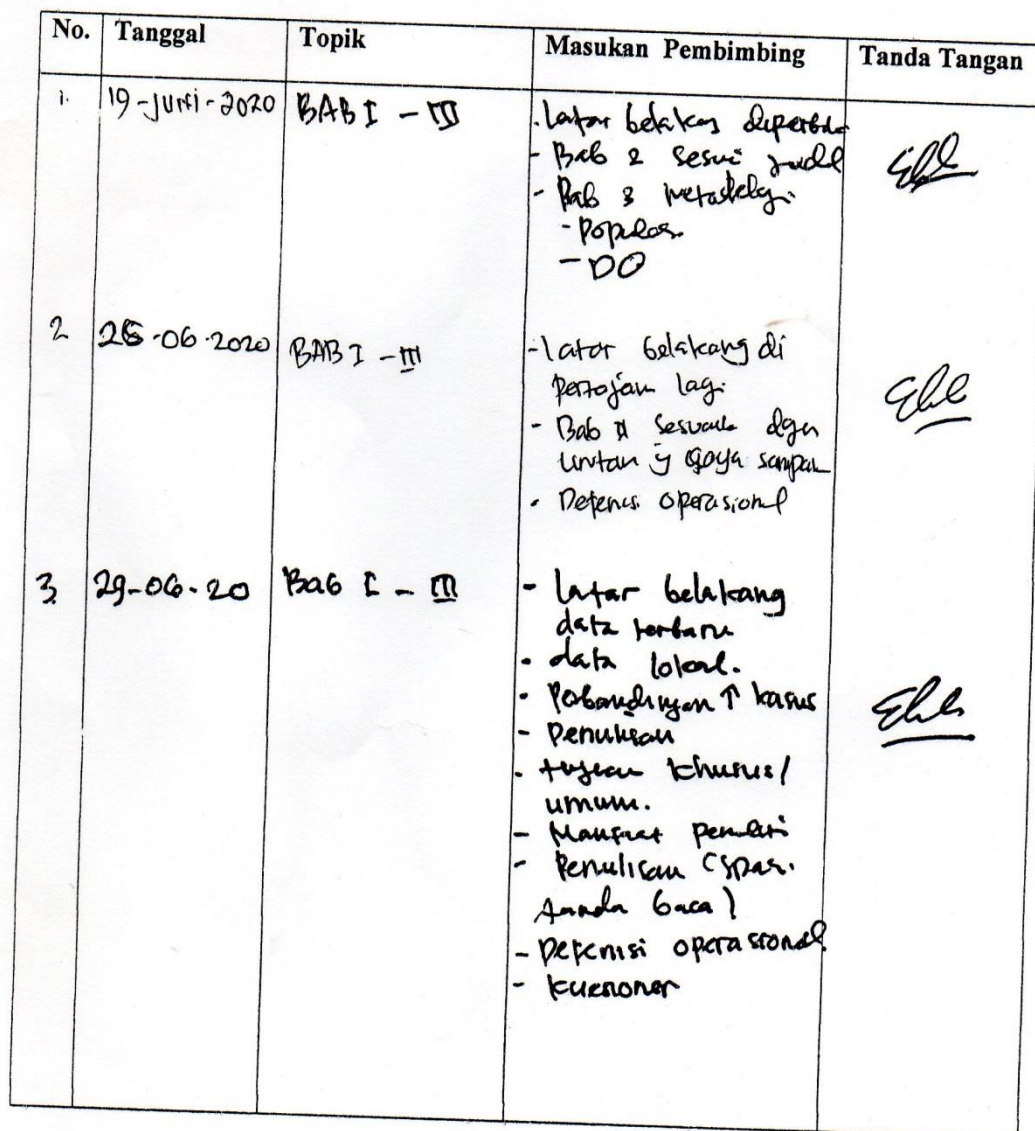 No. Tanggal Topik Masukan Pembimbing Tanda Tangan
1. 19-Juni-2020 BAB I - III - Latar belakang
- Bab 2 sesui judul
- Bab 3 metodologi
- Populasi
- DO
2 26-06-2020 BAB I - III - latar belakang di
pertajam lagi
- Bab II dgn
- Defenisi operasional
3. 29-06-20 Bab I - III - latar belakang
data terbaru
- data lokal.
- Perbandingan ↑ kasus
- Penulisan
- tujuan khusus/
umum.
- Manfaat peneliti
- Penulisan (spasi.
tanda baca)
- Defenisi operasional
- kuesioner